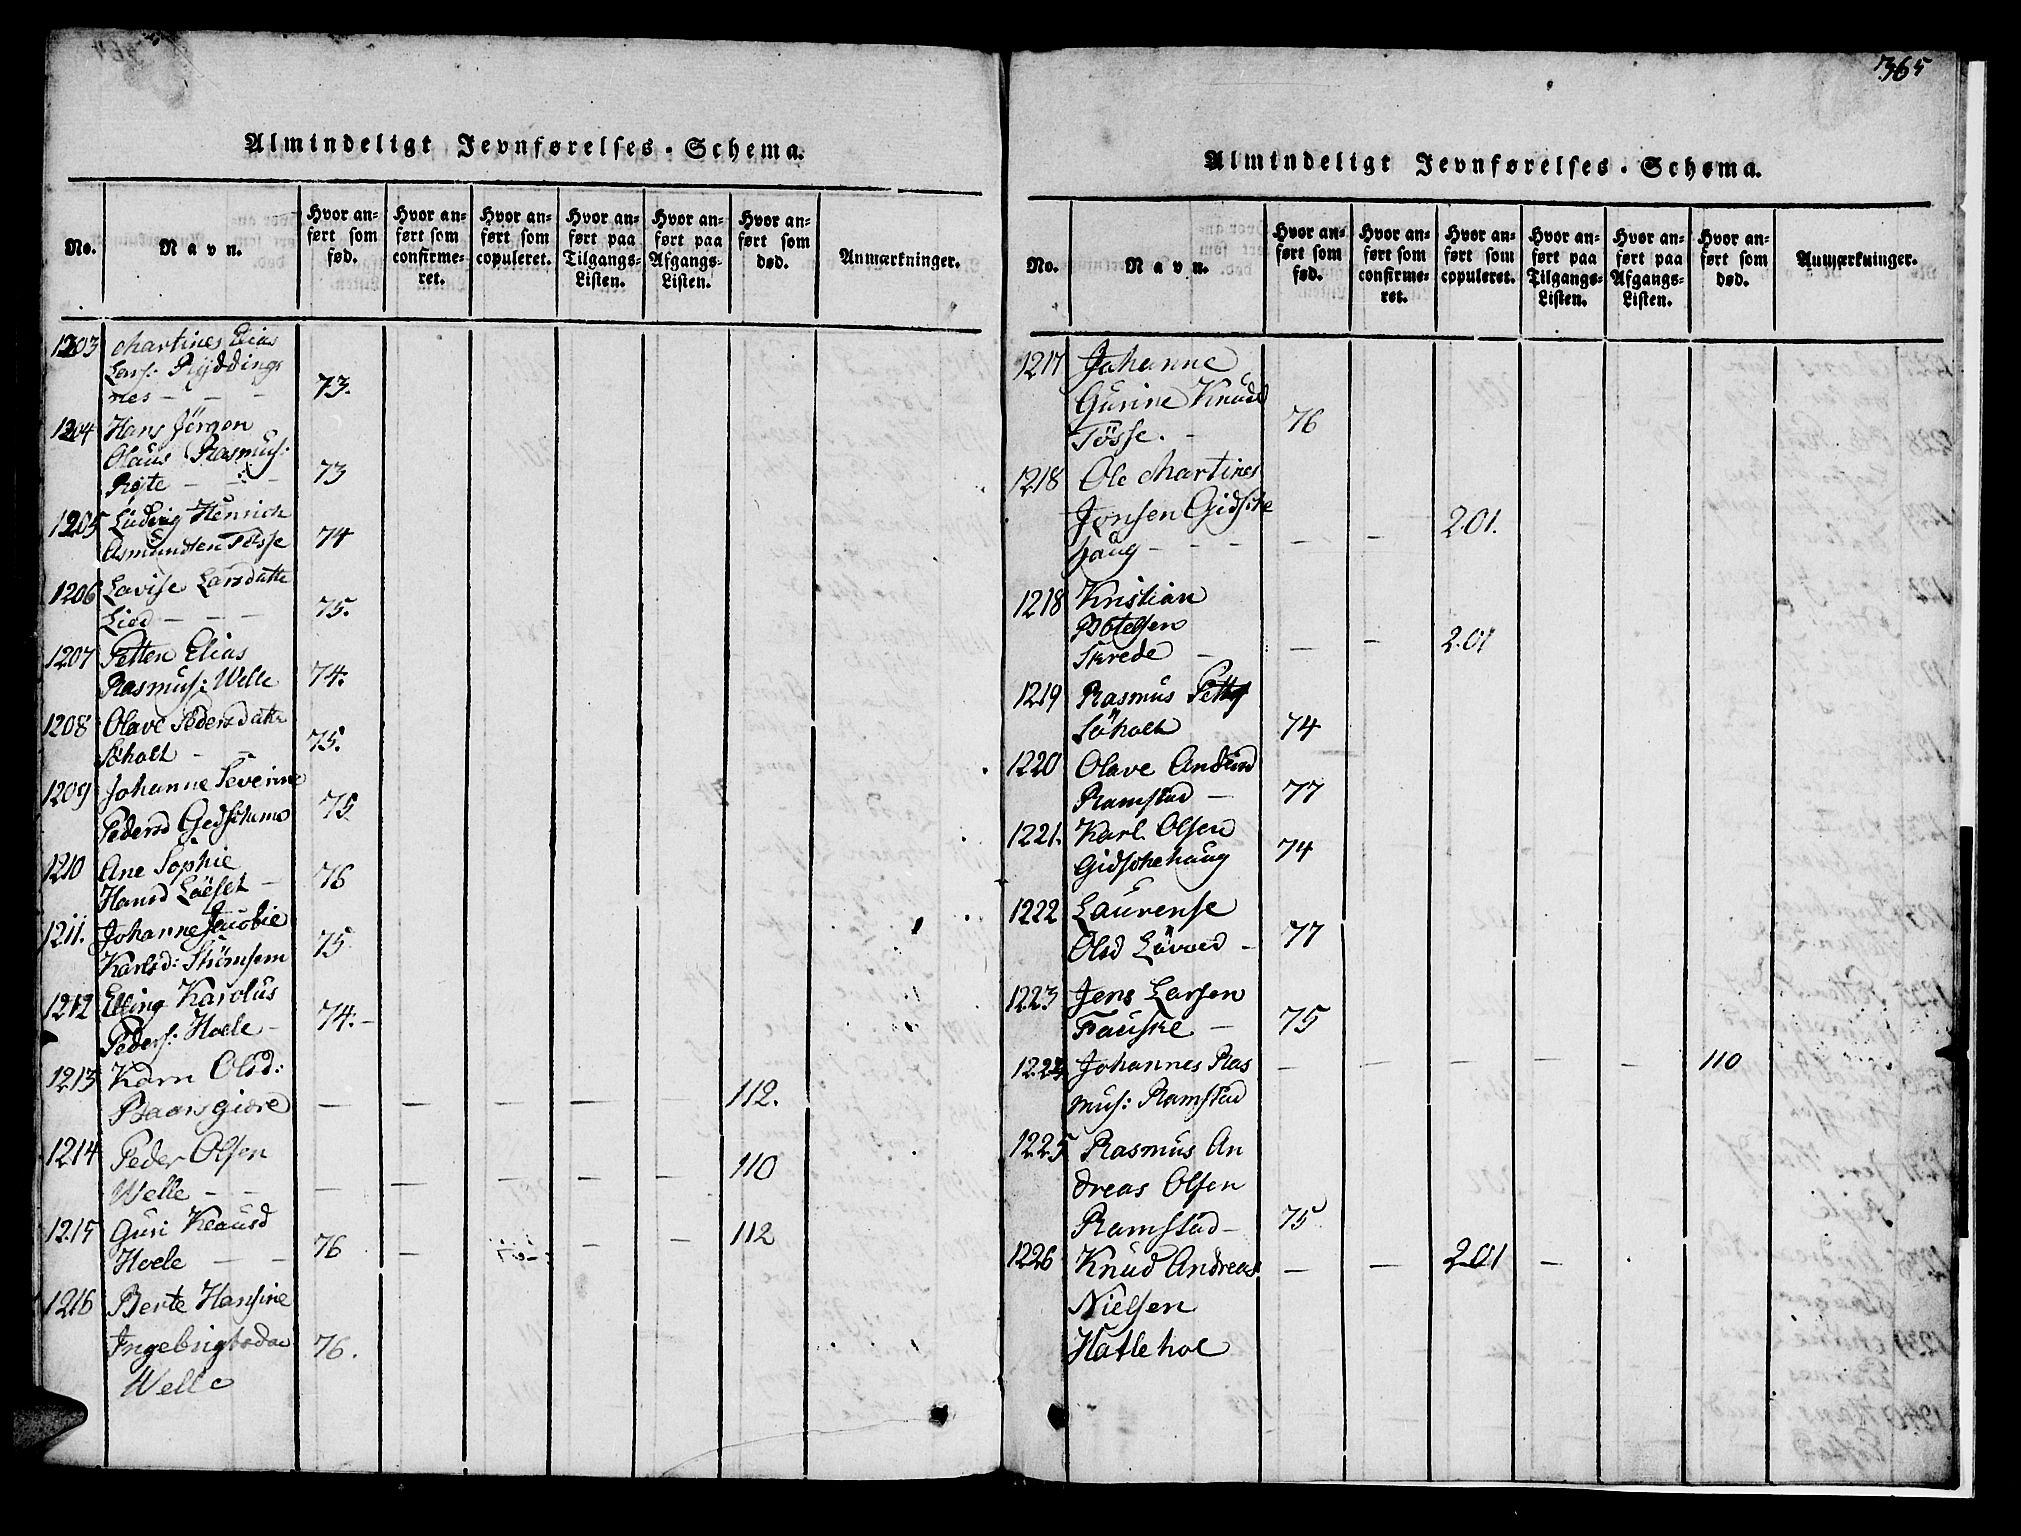 Almindeligt Jevnførelses-Schema.
No.
Navn.
Hvor an-
ført som
fød.
Hvor an-
ført som
confirme-
ret.
Hvor an-
ført som
copuleret.
Hvor an-
ført paa
Tilgangs-
Listen.
Hvor an-
ført paa
Afgangs-
Listen.
Hvor an-
ført som
død.
Anmærkninger.
1203 Martines Elias
Lars: Ryddings
nes - - - 73.
1204 Hans Jörgen
Olaus Rasmus:
Røite - - - 73
1205 Ludvig Henrich
Asmundsen Tøsse 74
1206 Lovise Larsdatte
Lied - - - 75.
1207 Petter Elias
Rasmus: Welle 74.
1208 Olave Pedersdatte
Søholt - - 75.
1209 Johanne Severine
Pedersd 75
1210 Ane Sophie
Hansd Løeset - 76
1211. Johanne Jacobie
Karlsd: Strømsem 75
1212 Elling Karolus
Peders: Hoele - 74. -
1213 Karn Olsd:
Baarsgiære - - - - - 112.
1214 Peder Olsen
Welle - - - - - - - 110
1215 Guri Knudsd
Hoele - - 76 - - - - 112
1216 Berte Hansine
Ingebrigtsda 76.
Welle
365
Almindeligt Jevnførelses-Schema.
No.
Navn.
Hvor an-
ført som
fød.
Hvor an-
ført som
confirme-
ret.
Hvor an-
ført som
copuleret.
Hvor an-
ført paa
Tilgangs-
Listen.
Hvor an-
ført paa
Afgangs-
Listen.
Hvor an-
ført som
død.
Anmærkninger.
1217 Johanne
Gurine Knudsd
Tösse. - 76
1218 Ole Martines
Jonsen Gidsche
haug - - - - - 201.
1218 Kristian
Botelsen
Skrede - - - 201
1219 Rasmus Petters
Söholt 74
1220 Olave Andersd
Ramstad - 77
1221. Karl Olsen
Gidschehaug 74
1222 Laurense
Olsd Lövoed - 77
1223 Jens Larsen
Fauske - 75
1224 Johannes Ras - - - - - 110
mus: Ramstad
1225 Rasmus An
dreas Olsen
Ramstad - 75
1226 Knud Andreas - - 201 -
Nielsen
Hatlehol